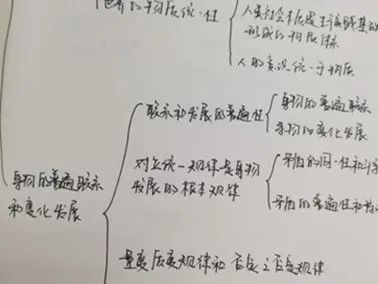 世界的物质统一性
人类社会本质是生产实践基础
形成的物质体系
人的意识统一于物质
联系和发展的普遍性
事物的普遍联系
事物的变化发展
事物的普遍联系
和变化发展
对立统一规律是事物
发展的根本规律
矛盾的同一性和斗
矛盾的普遍性和特
量变质变规律和否定之否定规律